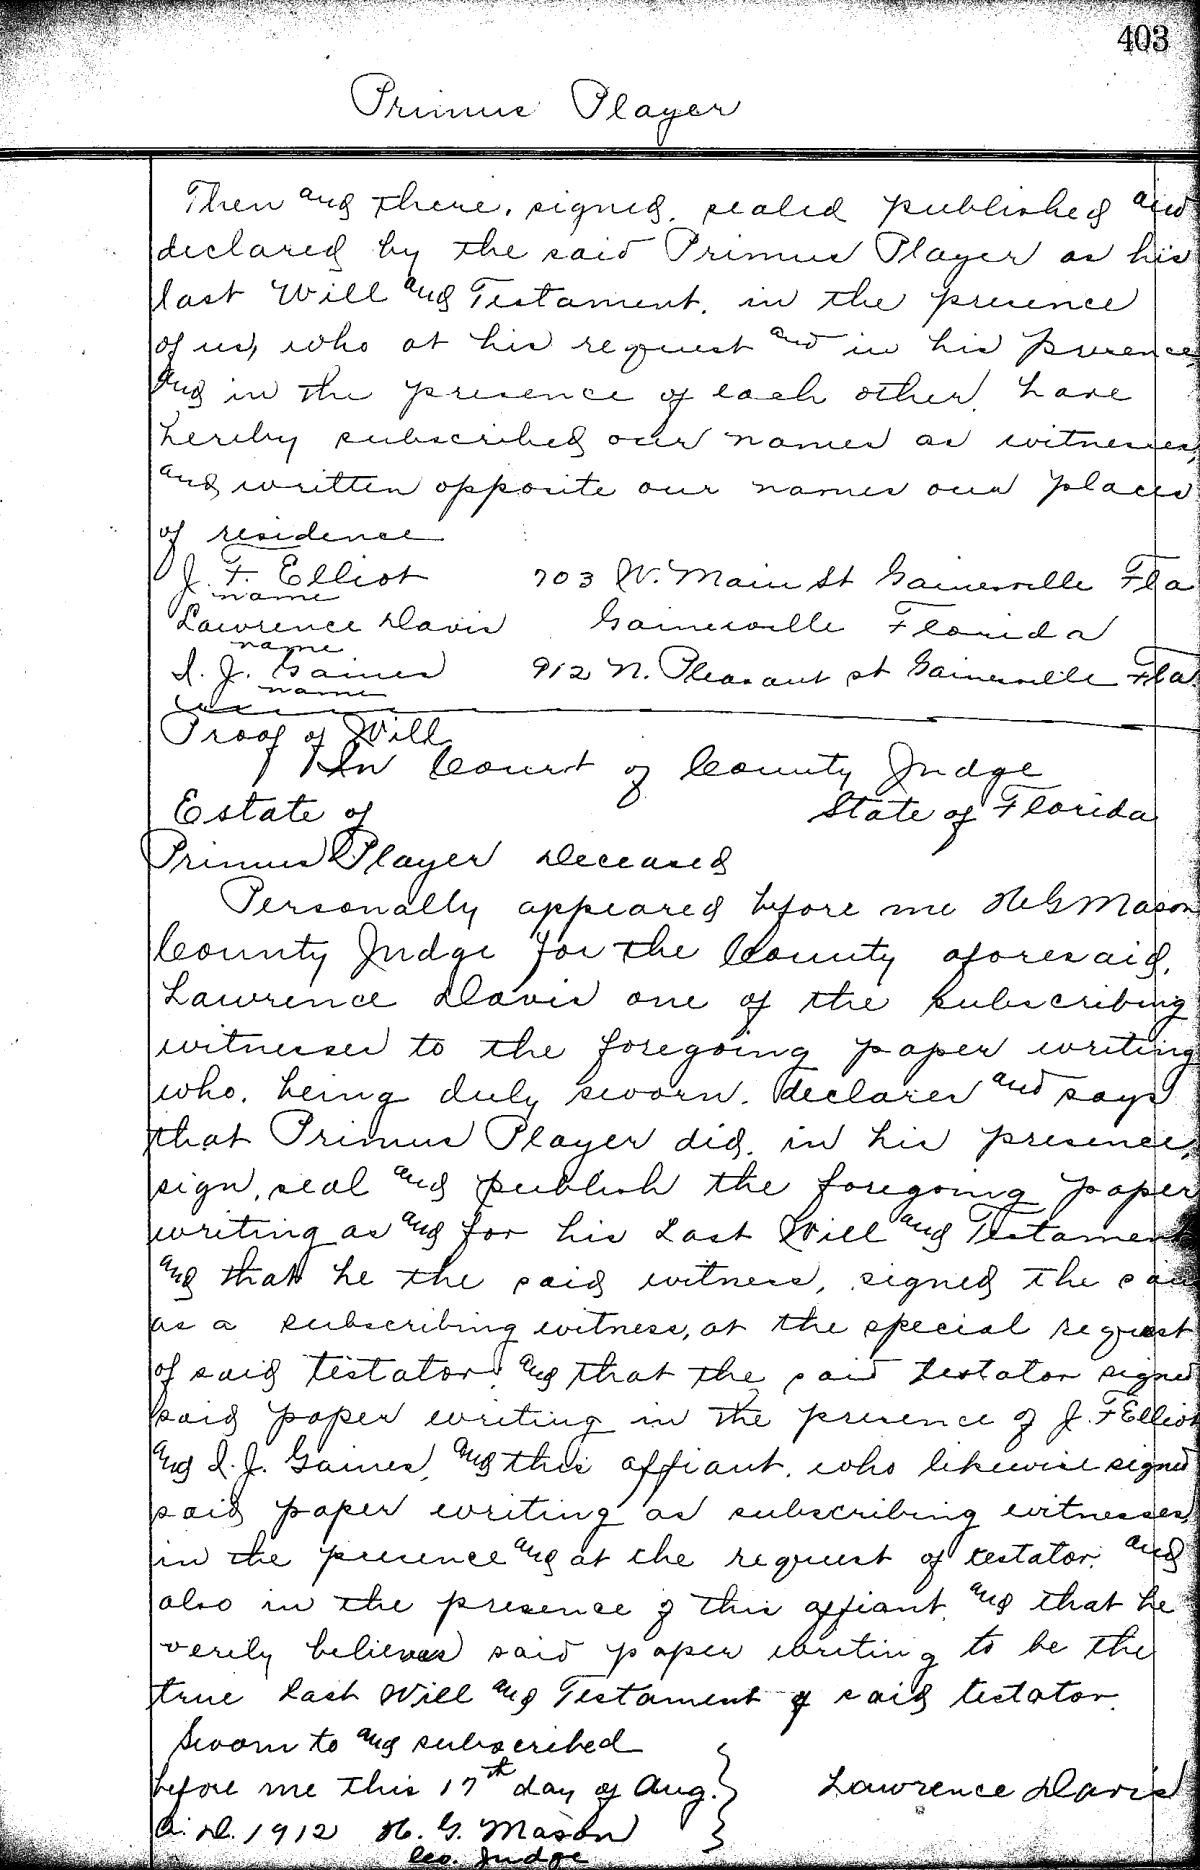 403
Primus Player
Then and there, signed, sealed published and
declared by the said Primus Player as his
last Will and Testament, in the presence
of us, who at his request and in his presence
and in the presence of each other, have
hereby subscribed our names as witnesses,
and written opposite our names our places
of residence
J. F. Elliot 703 W. Main St Gainesville Fla
name
Lawrence Davis Gainesville Florida
name
I. J. Gaines 912 N. Pleasant st Gainesville Fla.
name
Proof of Will
In Court of County Judge
Estate of State of Florida
Primus Player Deceased
Personally appeared before me H G Mason
County Judge for the County aforesaid,
Lawrence Davis one of the subscribing
witnesses to the foregoing paper writing
who, being duly sworn, declares and says
that Primus Player did, in his presence,
sign, seal and publish the foregoing paper
writing as and for his Last Will and Testament
and that he the said witness, signed the said
as a subscribing witness, at the special request
of said testator, and that the said testator signed
said paper writing in the presence of J. F Elliot
and I. J. Gaines, and this affiant, who likewise signed
said paper writing as subscribing witnesses,
in the presence and at the request of testator, and
also in the presence of this affiant, and that he
verily believes said paper writing to be the
true last Will and Testament of said testator.
Sworn to and subscribed
before me this 17th day of Aug. Lawrence Davis
A. D. 1912 H. G. Mason
Co. Judge